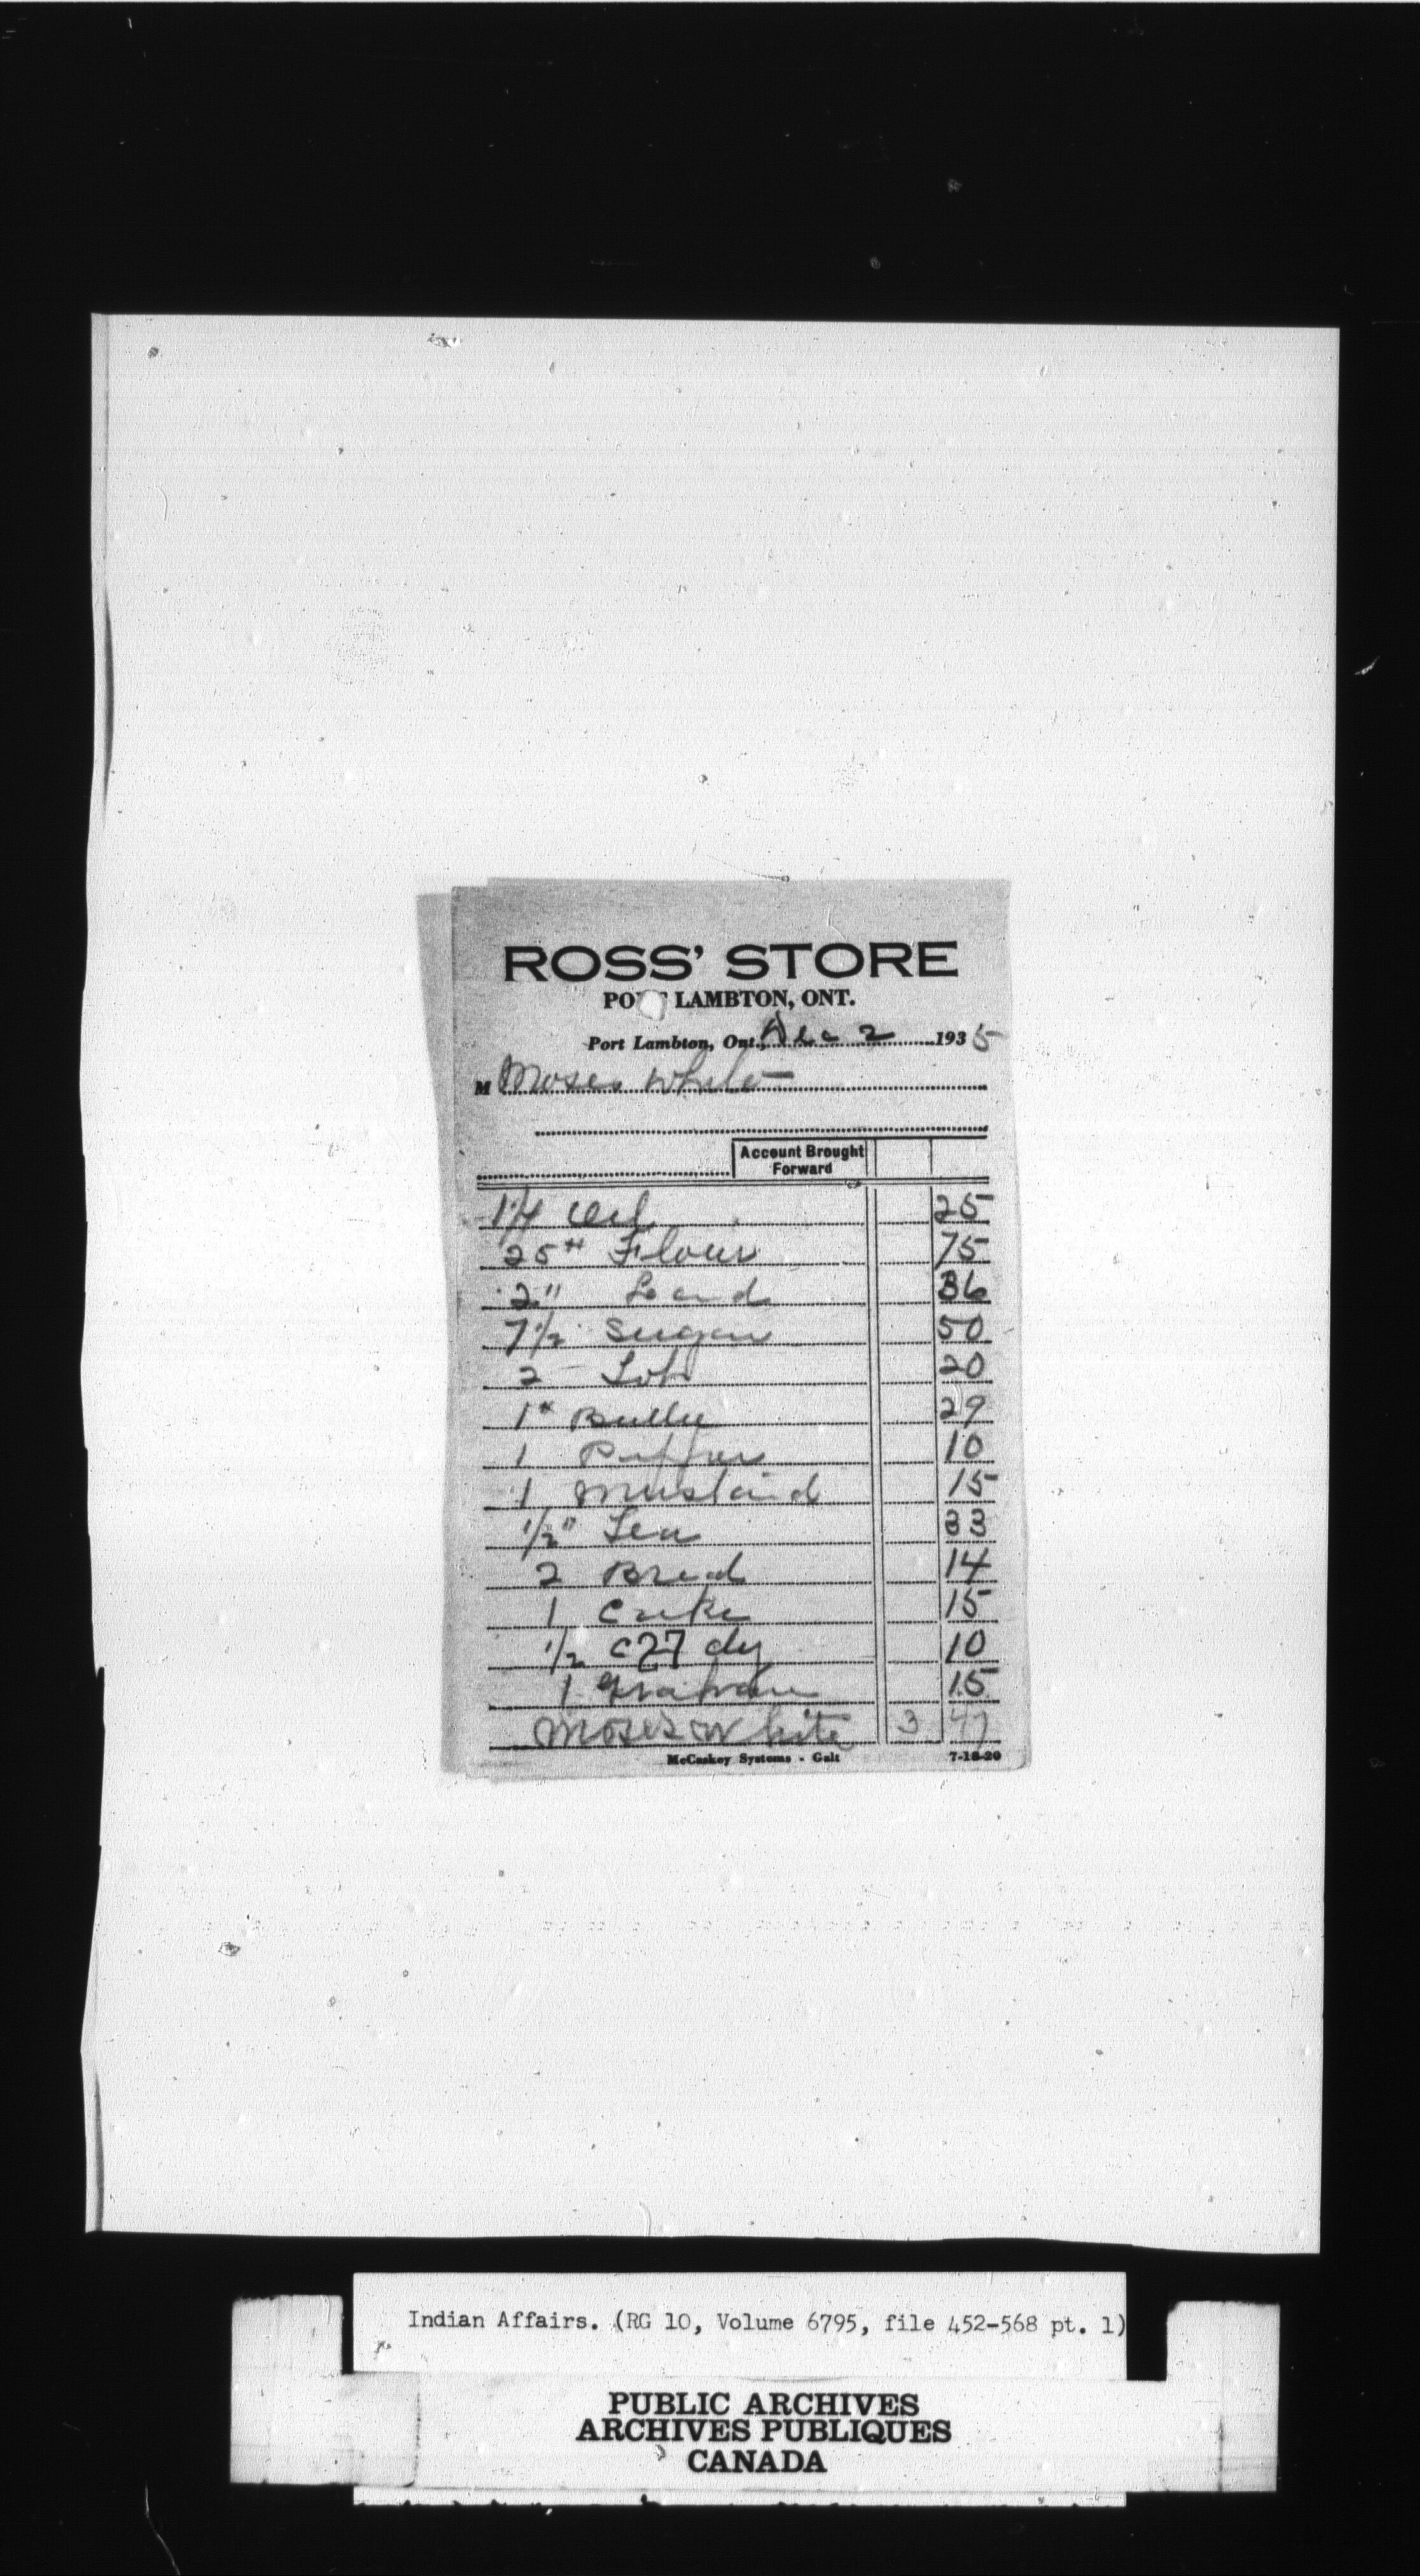 ROSS' STORE
PORT LAMBTON, ONT.
Port Lambton, Ont., Dec 2 1935
M Moses White
Account Brought
Forward
1 1/4 Oil 25
25# Flour 75
2" Lard 36
7 1/2 Sugar 50
2 20
1# Butter 29
1 Pepper 10
1 Mustard 15
1/2" Tea 33
2 Bread 14
1 Cake 15
1/2 c27dy 10
1 Graham 15
Moses White 3 47
McCaskey Systems - Galt 7-18-20
Indian Affairs. (RG 10, Volume 6795, file 452-568 pt. 1)
PUBLIC ARCHIVES
ARCHIVES PUBLIQUES
CANADA